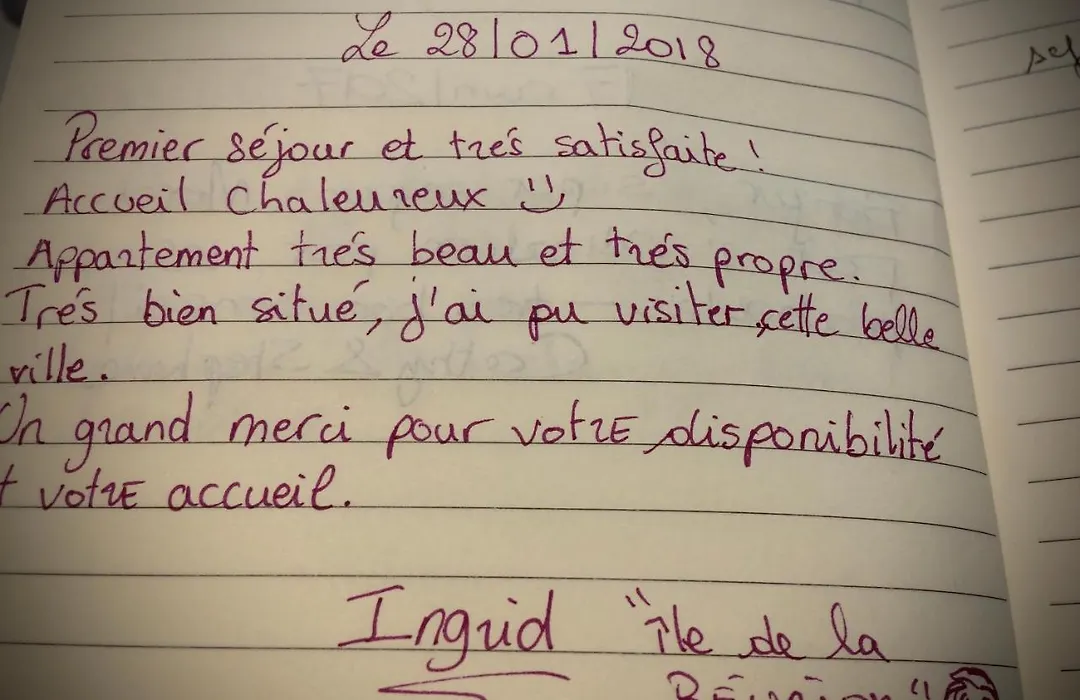 Le 28/01/2018
Premier séjour et trés satisfaite !
Accueil chaleureux :)
Appartement trés beau et trés propre.
Trés bien situé, j'ai pu visiter cette belle
ville.
Un grand merci pour votre disponibilité
et votre accueil.
Ingrid "île de la
Réunion"